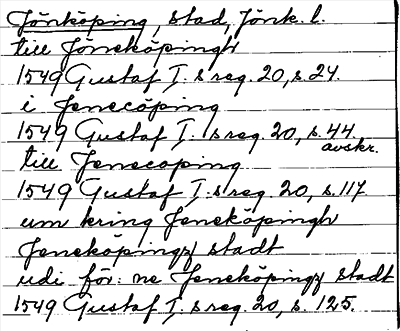 Jönköping, stad, Jönk. l.
till Jöneköpingh
1549 Gustaf I. s reg. 20, s. 24.
i Jenecöping
1549 Gustaf I. s reg. 20, s. 44.
avskr.
till Jenecoping
1549 Gustaf I. s reg. 20, s. 117
um kring Jeneköpingh
Jeneköpingz stadt
udi för: ne Jeneköpingz stadt
1549 Gustaf I. s reg. 20, s. 125.